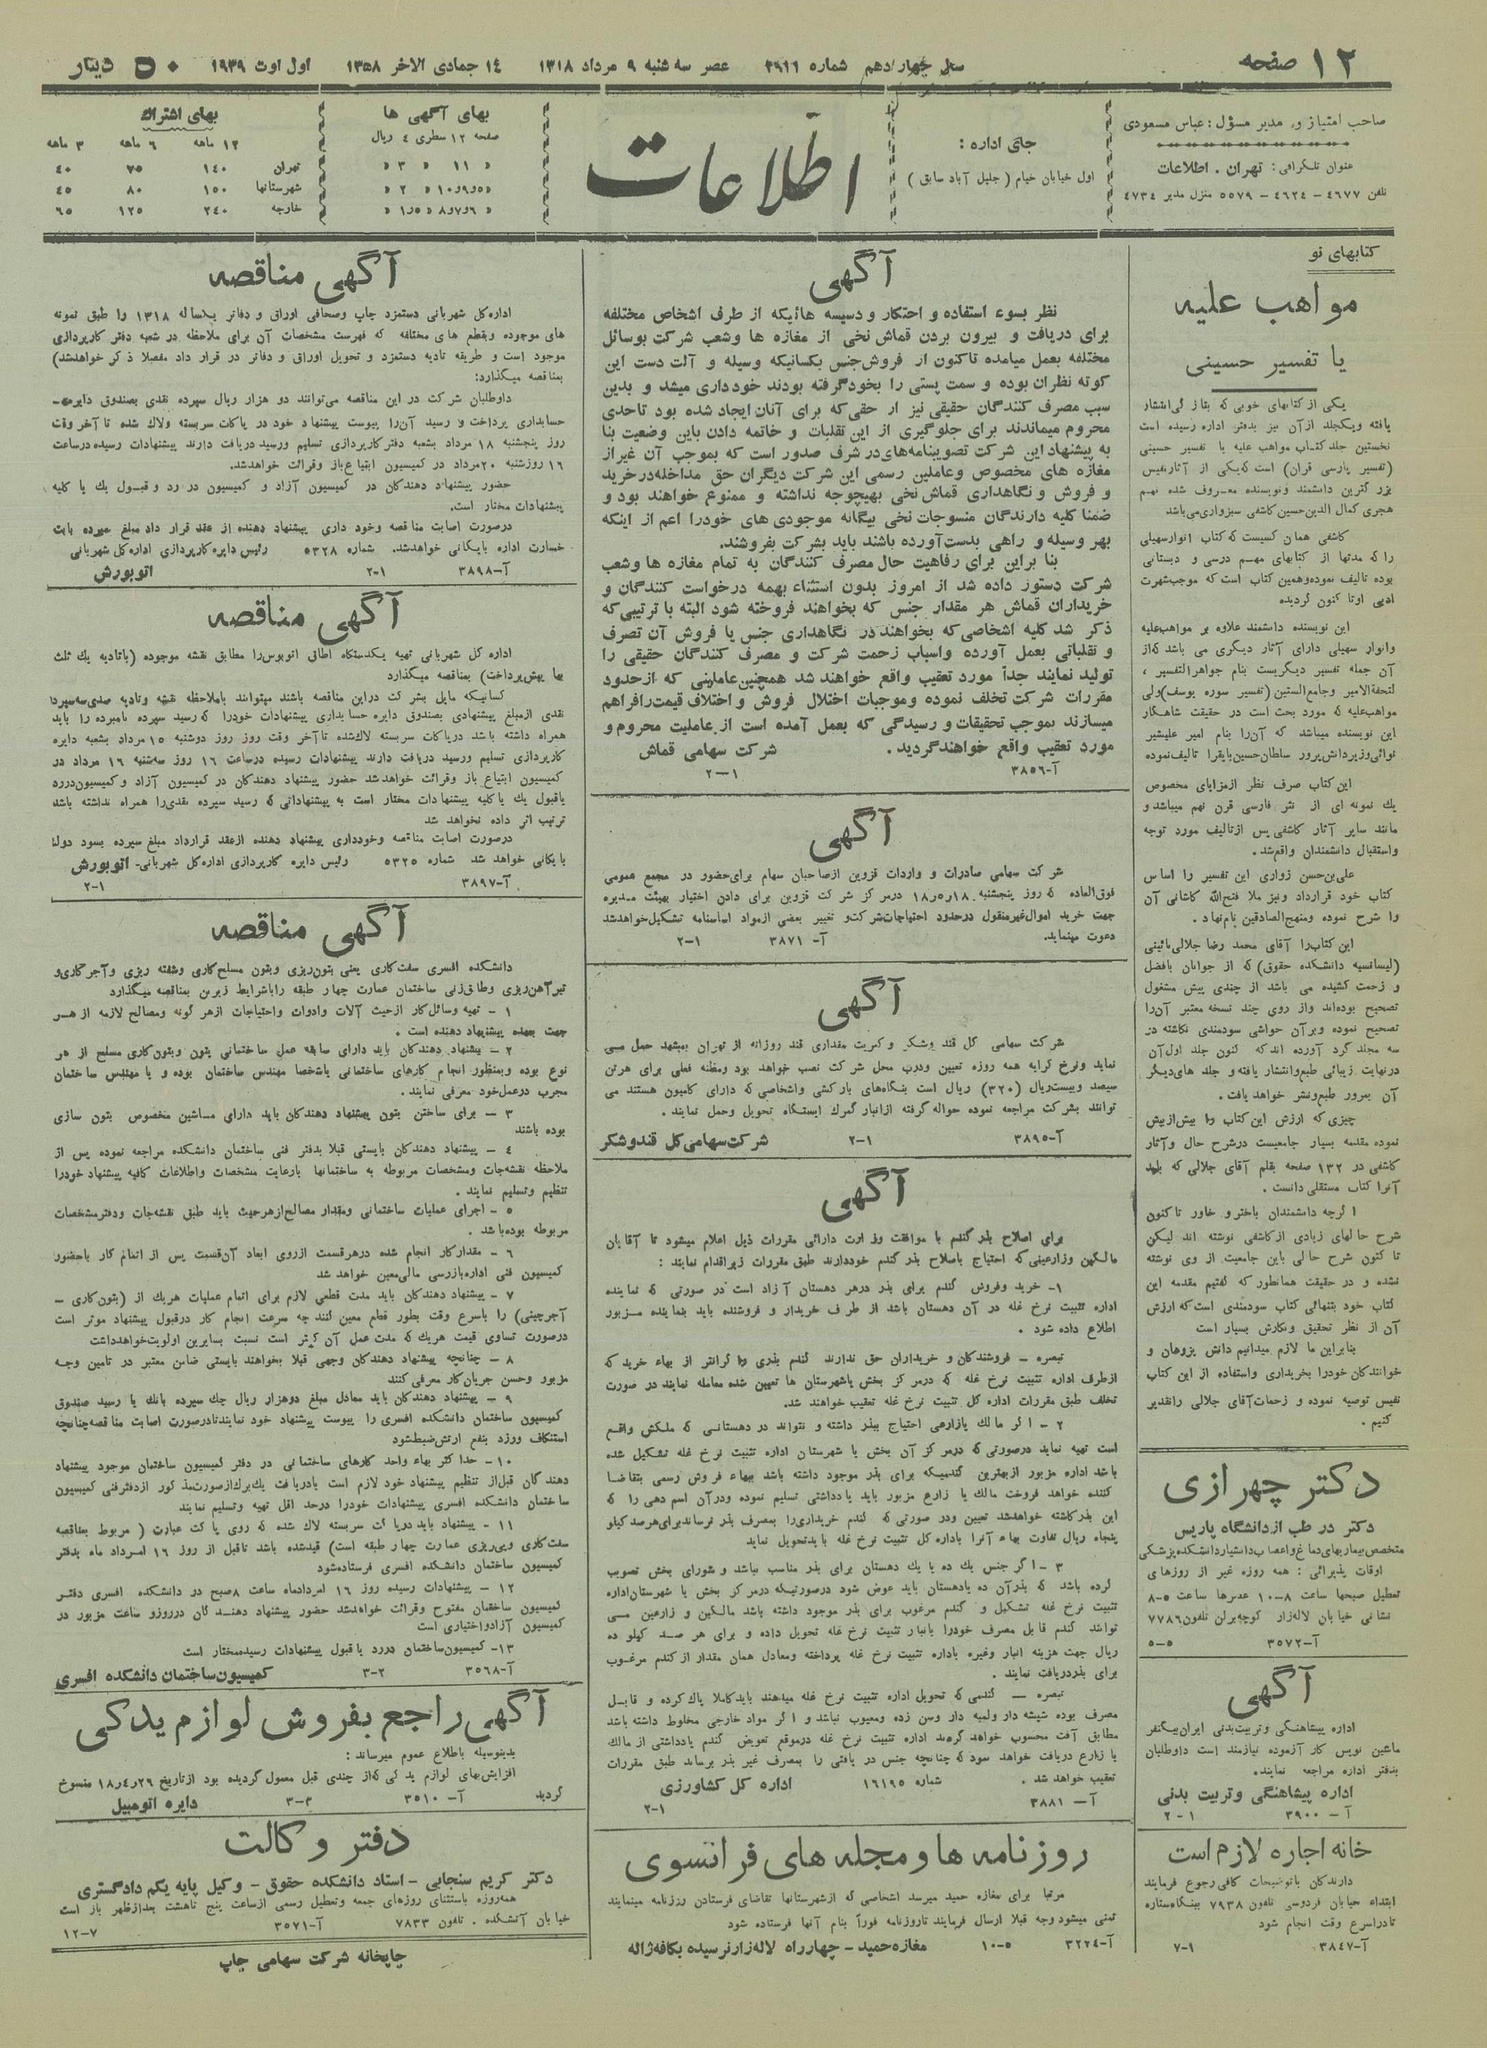 ۱۲ صفحه
سال چهاردهم شماره ۳۹۱۱ عصر سه شنبه ۹ مرداد ۱۳۱۸ ۱٤ جمادی الاخر ۱۳۵۸ اول اوت ۱۹۳۹
۵۰ دینار
صاحب امتیاز و مدیر مسؤل: عباس مسعودی
عنوان تلگرافی: تهران . اطلاعات
تلفن ٤۶۷۷ – ٤۶۲٤ – ۵۵۷۹ منزل مدیر ٤۷۳٤
جای اداره :
اول خیابان خیام ( جلیل آباد سابق )
اطلاعات
بهای آگهی ها
صفحه ۱۲ سطری ٤ ریال
« ۱۱ « ۳ «
« ۵و۹و۱۰ « ۲ «
« ۶و۷و۸ « ۱و۵ «
بهای اشتراك
۱۲ ماهه ۶ ماهه ۳ ماهه
تهران ۱٤۰ ۷۵ ٤۰
شهرستانها ۱۵۰ ۸۰ ٤۵
خارجه ۲٤۰ ۱۲۵ ۶۵
کتابهای نو
مواهب علیه
یا تفسیر حسینی
یکی از کتابهای خوبی که بتاز گی انتشار
یافته ویکجلد ازآن نیز بدفتر اداره رسیده است
نخستین جلد کتاب مواهب علیه یا تفسیر حسینی
(تفسیر پارسی قران) است که یکی از آثار نفیس
بزر گترین دانشمند ونویسنده معروف شده نهم
هجری کمال الدین حسین کاشفی سبزواری می باشد
کاشفی همان کسیست که کتاب انوارسهیلی
را که مدتها از کتابهای مهم درسی و دبستانی
بوده تالیف نموده وهمین کتاب است که موجب شهرت
ادبی اوتا کنون گردیده
این نویسنده دانشمند علاوه بر مواهب علیه
وانوار سهیلی دارای آثار دیگری می باشد که از
آن جمله تفسیر دیگریست بنام جواهرالتفسیر ،
لتحفةالامیر وجامع الستین (تفسیر سوره یوسف) ولی
مواهب علیه که مورد بحث است در حقیقت شاهکار
این نویسنده میباشد که آن را بنام امیر علیشیر
نوائی وزیر دانش پرور سلطان حسین بایقرا تالیف نموده
این کتاب صرف نظر از مزایای مخصوص
یك نمونه ای از نثر فارسی قرن نهم میباشد و
مانند سایر آثار کاشفی پس ازتالیف مورد توجه
واستقبال دانشمندان واقع شد.
علی بن حسن زواری این تفسیر را اساس
کتاب خود قرارداد ونیز ملا فتح الله کاشانی آن
را شرح نموده ومنهج الصادقین نام نهاد.
این کتاب را آقای محمد رضا جلالی نائینی
(لیسانسیه دانشکده حقوق) که از جوانان بافضل
و زحمت کشیده می باشد از چندی پیش مشغول
تصحیح بوده اند واز روی چند نسخه معتبر آن را
تصحیح نموده وبرآن حواشی سودمندی نگاشته در
سه مجلد گرد آورده اند که کنون جلد اول آن
درنهایت زیبائی طبع وانتشار یافته و جلد های دیگر
آن بمرور طبع ونشر خواهد یافت.
چیزی که ارزش این کتاب را بیش از پیش
نموده مقدمه بسیار جامعیست درشرح حال وآثار
کاشفی در ۱۳۲ صفحه بقلم آقای جلالی که باید
آنرا کتاب مستقلی دانست .
اگرچه دانشمندان باختر و خاور تا کنون
شرح حالهای زیادی از کاشفی نوشته اند لیکن
تا کنون شرح حالی باین جامعیت از وی نوشته
نشده و در حقیقت همانطور که گفتیم مقدمه این
کتاب خود بتنهائی کتاب سودمندی است که ارزش
آن از نظر تحقیق ونگارش بسیار است
بنابراین ما لازم میدانیم دانش پژوهان و
خوانندگان خودرا بخریداری واستفاده از این کتاب
نفیس توصیه نموده و زحمات آقای جلالی را تقدیر
کنیم .
دکتر چهرازی
دکتر در طب از دانشگاه پاریس
متخصص بیماریهای دماغ واعصاب دانشیار دانشکده پزشکی
اوقات پذیرائی : همه روزه غیر از روزهای
تعطیل صبحها ساعت ۸–۱۰ عصرها ساعت ۵–۸
نشانی خیابان لاله زار کوچه برلن تلفون ۷۷۸۶
آ–۳۵۷۲ ۵–۵
آگهی
اداره پیشاهنگی وتربیت بدنی ایران بیکنفر
ماشین نویس کار آزموده نیازمند است داوطلبان
بدفتر اداره مراجعه نمایند.
اداره پیشاهنگی وتربیت بدنی
آ – ۳۹۰۰ ۱–۲
خانه اجاره لازم است
دارندگان باتوضیحات کافی رجوع فرمایند
ابتداء خیابان فردوسی تلفون ۷۹۳۸ بنگاه ستاره
تادراسرع وقت انجام شود
آ–۳۸٤۷ ۱–۷
آگهی
نظر بسوء استفاده و احتکار و دسیسه هائیکه از طرف اشخاص مختلفه
برای دریافت و بیرون بردن قماش نخی از مغازه ها وشعب شرکت بوسائل
مختلفه بعمل میامده تاکنون از فروش جنس بکسانیکه وسیله و آلت دست این
کوته نظران بوده و سمت پستی را بخود گرفته بودند خودداری میشد و بدین
سبب مصرف کنندگان حقیقی نیز از حقی که برای آنان ایجاد شده بود تاحدی
محروم میماندند برای جلوگیری از این تقلبات و خاتمه دادن باین وضعیت بنا
به پیشنهاد این شرکت تصویبنامه ای در شرف صدور است که بموجب آن غیراز
مغازه های مخصوص وعاملین رسمی این شرکت دیگران حق مداخله درخرید
و فروش و نگاهداری قماش نخی بهیچوجه نداشته و ممنوع خواهند بود و
ضمنا کلیه دارندگان منسوجات نخی بیگانه موجودی های خودرا اعم از اینکه
بهر وسیله و راهی بدست آورده باشند باید بشرکت بفروشند.
بنا براین برای رفاهیت حال مصرف کنندگان به تمام مغازه ها وشعب
شرکت دستور داده شد از امروز بدون استثناء بهمه درخواست کنندگان و
خریداران قماش هر مقدار جنس که بخواهند فروخته شود البته با ترتیبی که
ذکر شد کلیه اشخاصی که بخواهند در نگاهداری جنس یا فروش آن تصرف
و تقلباتی بعمل آورده واسباب زحمت شرکت و مصرف کنندگان حقیقی را
تولید نمایند جداً مورد تعقیب واقع خواهند شد همچنین عاملینی که از حدود
مقررات شرکت تخلف نموده وموجبات اختلال فروش و اختلاف قیمت رافراهم
میسازند بموجب تحقیقات و رسیدگی که بعمل آمده است از عاملیت محروم و
مورد تعقیب واقع خواهند گردید .
شرکت سهامی قماش
آ–۳۸۵۶ ۱–۲
آگهی
شرکت سهامی صادرات و واردات قزوین ازصاحبان سهام برای حضور در مجمع عمومی
فوق العاده که روز پنجشنبه ۱۸ر۵ر۱۸ درمرکز شرکت قزوین برای دادن اختیار بهیئت مدیره
جهت خرید اموال غیرمنقول درحدود احتیاجات شرکت و تغییر بعضی ازمواد اساسنامه تشکیل خواهد شد
دعوت مینماید.
آ– ۳۸۷۱ ۱–۲
آگهی
شرکت سهامی کل قند وشکر و کبریت مقداری قند روزانه از تهران بمشهد حمل می
نماید ونرخ کرایه همه روزه تعیین ودرب محل شرکت نصب خواهد بود ومظنه فعلی برای هرتن
سیصد وبیست ریال (۳۲۰) ریال است بنگاههای بارکشی واشخاصی که دارای کامیون هستند می
توانند بشرکت مراجعه نموده حواله گرفته ازانبار گمرك ایستگاه تحویل وحمل نمایند .
آ–۳۸۹۵ ۱–۲ شرکت سهامی کل قندوشکر
آگهی
برای اصلاح بذر گندم با موافقت وزارت دارائی مقررات ذیل اعلام میشود تا آقایان
مالکین وزارعینی که احتیاج باصلاح بذر گندم خوددارند طبق مقررات زیر اقدام نمایند :
۱– خرید وفروش گندم برای بذر درهر دهستان آزاد است در صورتی که نماینده
اداره تثبیت نرخ غله در آن دهستان باشد از طرف خریدار و فروشنده باید بنماینده مزبور
اطلاع داده شود .
تبصره – فروشندگان و خریداران حق ندارند گندم بذری را گرانتر از بهاء خرید که
ازطرف اداره تثبیت نرخ غله که درمرکز بخش یاشهرستان ها تعیین شده معامله نمایند در صورت
تخلف طبق مقررات اداره کل تثبیت نرخ غله تعقیب خواهند شد.
۲ – اگر مالك یازارعی احتیاج ببذر داشته و نتواند در دهستانی که ملکش واقع
است تهیه نماید درصورتی که درمرکز آن بخش یا شهرستان اداره تثبیت نرخ غله تشکیل شده
باشد اداره مزبور ازبهترین گندمیکه برای بذر موجود داشته باشد ببهاء فروش رسمی بتقاضا
کننده خواهد فروخت مالك یا زارع مزبور باید یادداشتی تسلیم نموده ودرآن اسم دهی را که
این بذر کاشته خواهد شد تعیین ودر صورتی که گندم خریداری را بمصرف بذر نرساند برای هرصد کیلو
پنجاه ریال تفاوت بهاء آنرا باداره کل تثبیت نرخ غله باید تحویل نماید
۳ – اگر جنس یك ده یا یك دهستان برای بذر مناسب نباشد و شورای بخش تصویب
کرده باشد که بذر آن ده یادهستان باید عوض شود درصورتیکه درمرکز بخش یا شهرستان اداره
تثبیت نرخ غله تشکیل و گندم مرغوب برای بذر موجود داشته باشد مالکین و زارعین می
توانند گندم قابل مصرف خودرا بانبار تثبیت نرخ غله تحویل داده و برای هر صد کیلو ده
ریال جهت هزینه انبار وغیره باداره تثبیت نرخ غله پرداخته ومعادل همان مقدار از گندم مرغوب
برای بذر دریافت نمایند .
تبصره – گندمی که تحویل اداره تثبیت نرخ غله میدهند باید کاملا پاك کرده و قابل
مصرف بوده شپشه دار ولمبه دار وسن زده ومعیوب نباشد و اگر مواد خارجی مخلوط داشته باشد
مطابق آفت محسوب خواهد گردید اداره تثبیت نرخ غله درموقع تعویض گندم یادداشتی از مالك
یا زارع دریافت خواهد نمود که چنانچه جنس دریافتی را بمصرف غیر بذر برساند طبق مقررات
تعقیب خواهد شد . شماره ۱۶۱۹۵ اداره کل کشاورزی
آ– ۳۸۸۱ ۱–۲
روزنامه ها ومجله های فرانسوی
مرتبا برای مغازه حمید میرسد اشخاصی که ازشهرستانها تقاضای فرستادن روزنامه مینمایند
تمنی میشود وجه قبلا ارسال فرمایند تاروزنامه فوراً بنام آنها فرستاده شود
آ–۳۲۲٤ ۵–۱۰ مغازه حمید – چهارراه لاله زار نرسیده بکافه ژاله
آگهی مناقصه
اداره کل شهربانی دستمزد چاپ وصحافی اوراق و دفاتر یکساله ۱۳۱۸ را طبق نمونه
های موجوده وبقطع های مختلفه که فهرست مشخصات آن برای ملاحظه در شعبه دفتر کارپردازی
موجود است و طریقه تادیه دستمزد و تحویل اوراق و دفاتر در قرار داد مفصلا ذکر خواهد شد)
بمناقصه میگذارد:
داوطلبان شرکت در این مناقصه می توانند دو هزار ریال سپرده نقدی بصندوق دایره
حسابداری پرداخت و رسید آن را پیوست پیشنهاد خود در پاکت سربسته ولاك شده تا آخر وقت
روز پنجشنبه ۱۸ مرداد بشعبه دفتر کارپردازی تسلیم ورسید دریافت دارند پیشنهادات رسیده درساعت
۱۶ روز شنبه ۲۰ مرداد در کمیسیون ابتیاع باز وقرائت خواهد شد.
حضور پیشنهاد دهندگان در کمیسیون آزاد و کمیسیون در رد و قبول یك یا کلیه
پیشنهادات مختار است.
درصورت اصابت مناقصه وخود داری پیشنهاد دهنده از عقد قرار داد مبلغ سپرده بابت
خسارت اداره بایگانی خواهد شد. شماره ۵۳۲۸ رئیس دایره کارپردازی اداره کل شهربانی
آ–۳۸۹۸ ۱–۲ اتوبورش
آگهی مناقصه
اداره کل شهربانی تهیه یکدستگاه اطاق اتوبوس را مطابق نقشه موجوده (باتادیه یك ثلث
بها پیش پرداخت) بمناقصه میگذارد
کسانیکه مایل بشرکت دراین مناقصه باشند میتوانند باملاحظه نقشه وتادیه صدی سه سپرده
نقدی ازمبلغ پیشنهادی بصندوق دایره حسابداری پیشنهادات خودرا که رسید سپرده نامبرده را باید
همراه داشته باشد درپاکت سربسته لاك شده تا آخر وقت روز روز دوشنبه ۱۵ مرداد بشعبه دایره
کارپردازی تسلیم ورسید دریافت دارند پیشنهادات رسیده درساعت ۱۶ روز سه شنبه ۱۶ مرداد در
کمیسیون ابتیاع باز وقرائت خواهد شد حضور پیشنهاد دهندگان در کمیسیون آزاد و کمیسیون دررد
یاقبول یك یا کلیه پیشنهادات مختار است به پیشنهاداتی که رسید سپرده نقدی را همراه نداشته باشد
ترتیب اثر داده نخواهد شد
درصورت اصابت مناقصه وخودداری پیشنهاد دهنده ازعقد قرارداد مبلغ سپرده بسود دولت
بایگانی خواهد شد شماره ۵۳۲۵ رئیس دایره کارپردازی اداره کل شهربانی– اتوبورش
آ–۳۸۹۷ ۱–۲
آگهی مناقصه
دانشکده افسری سفت کاری یعنی بتون ریزی وبتون مسلح کاری وشفته ریزی وآجرکاری و
تیرآهن ریزی وطاق زنی ساختمان عمارت چهار طبقه را باشرایط زیرین بمناقصه میگذارد
۱ – تهیه وسائل کار ازحیث آلات وادوات واحتیاجات ازهر گونه ومصالح لازمه از هر
جهت بعهده پیشنهاد دهنده است .
۲ – پیشنهاد دهندگان باید دارای سابقه عمل ساختمانی بتون وبتون کاری مسلح از هر
نوع بوده وبمنظور انجام کارهای ساختمانی یاشخصا مهندس ساختمان بوده و یا مهندس ساختمان
مجرب درعمل خود معرفی نمایند .
۳ – برای ساختن بتون پیشنهاد دهندگان باید دارای ماشین مخصوص بتون سازی
بوده باشند
٤ – پیشنهاد دهندگان بایستی قبلا بدفتر فنی ساختمان دانشکده مراجعه نموده پس از
ملاحظه نقشه جات ومشخصات مربوطه به ساختمانها بارعایت مشخصات واطلاعات کافیه پیشنهاد خودرا
تنظیم وتسلیم نمایند .
۵ – اجرای عملیات ساختمانی ومقدار مصالح ازهرحیث باید طبق نقشه جات ودفتر مشخصات
مربوطه بوده باشد .
۶ – مقدار کار انجام شده درهرقسمت ازروی ابعاد آن قسمت پس از اتمام کار باحضور
کمیسیون فنی اداره بازرسی مالی معین خواهد شد
۷ – پیشنهاد دهندگان باید مدت قطعی لازم برای اتمام عملیات هریك از (بتون کاری –
آجرچینی) را باسرع وقت بطور قطع معین کنند چه سرعت انجام کار درقبول پیشنهاد موثر است
درصورت تساوی قیمت هریك که مدت عمل آن کمتر است نسبت بسایرین اولویت خواهد داشت
۸ – چنانچه پیشنهاد دهندگان وجهی قبلا بخواهند بایستی ضامن معتبر در تامین وجه
مزبور وحسن جریان کار معرفی کنند
۹ – پیشنهاد دهندگان باید معادل مبلغ دوهزار ریال چك سپرده بانك یا رسید صندوق
کمیسیون ساختمان دانشکده افسری را پیوست پیشنهاد خود نمایند تادرصورت اصابت مناقصه چنانچه
استنکاف ورزد بنفع ارتش ضبط شود
۱۰– حداکثر بهاء واحد کارهای ساختمانی در دفتر کمیسیون ساختمان موجود پیشنهاد
دهندگان قبل از تنظیم پیشنهاد خود لازم است بادریافت یك برك ازصورت مذکور ازدفتر فنی کمیسیون
ساختمان دانشکده افسری پیشنهادات خودرا درحد اقل تهیه وتسلیم نمایند
۱۱ – پیشنهاد باید درپاکت سربسته لاك شده که روی پاکت عبارت ( مربوط بمناقصه
سفت کاری وپی ریزی عمارت چهار طبقه است) قید شده باشد تاقبل از روز ۱۶ امرداد ماه بدفتر
کمیسیون ساختمان دانشکده افسری فرستاده شود
۱۲ – پیشنهادات رسیده روز ۱۶ امرداد ماه ساعت ۸ صبح در دانشکده افسری دفتر
کمیسیون ساختمان مفتوح وقرائت خواهد شد حضور پیشنهاد دهندگان درروز و ساعت مزبور در
کمیسیون آزاد و اختیاری است
۱۳– کمیسیون ساختمان دررد یا قبول پیشنهادات رسیده مختار است
آ–۳۵۶۸ ۲–۳ کمیسیون ساختمان دانشکده افسری
آگهی راجع بفروش لوازم یدکی
بدینوسیله باطلاع عموم میرساند :
افزایش بهای لوازم یدکی که از چندی قبل معمول گردیده بود ازتاریخ ۲۶ر۴ر۱۸ منسوخ
گردید آ– ۳۵۱۰ ۳–۳ دایره اتومبیل
دفتر وکالت
دکتر کریم سنجابی – استاد دانشکده حقوق – وکیل پایه یکم دادگستری
همه روزه باستثنای روزهای جمعه وتعطیل رسمی ازساعت پنج تا هشت بعد ازظهر باز است
خیابان آتشکده . تلفون ۷۸۳۳ آ–۳۵۷۱ ۷–۱۲
چاپخانه شرکت سهامی چاپ